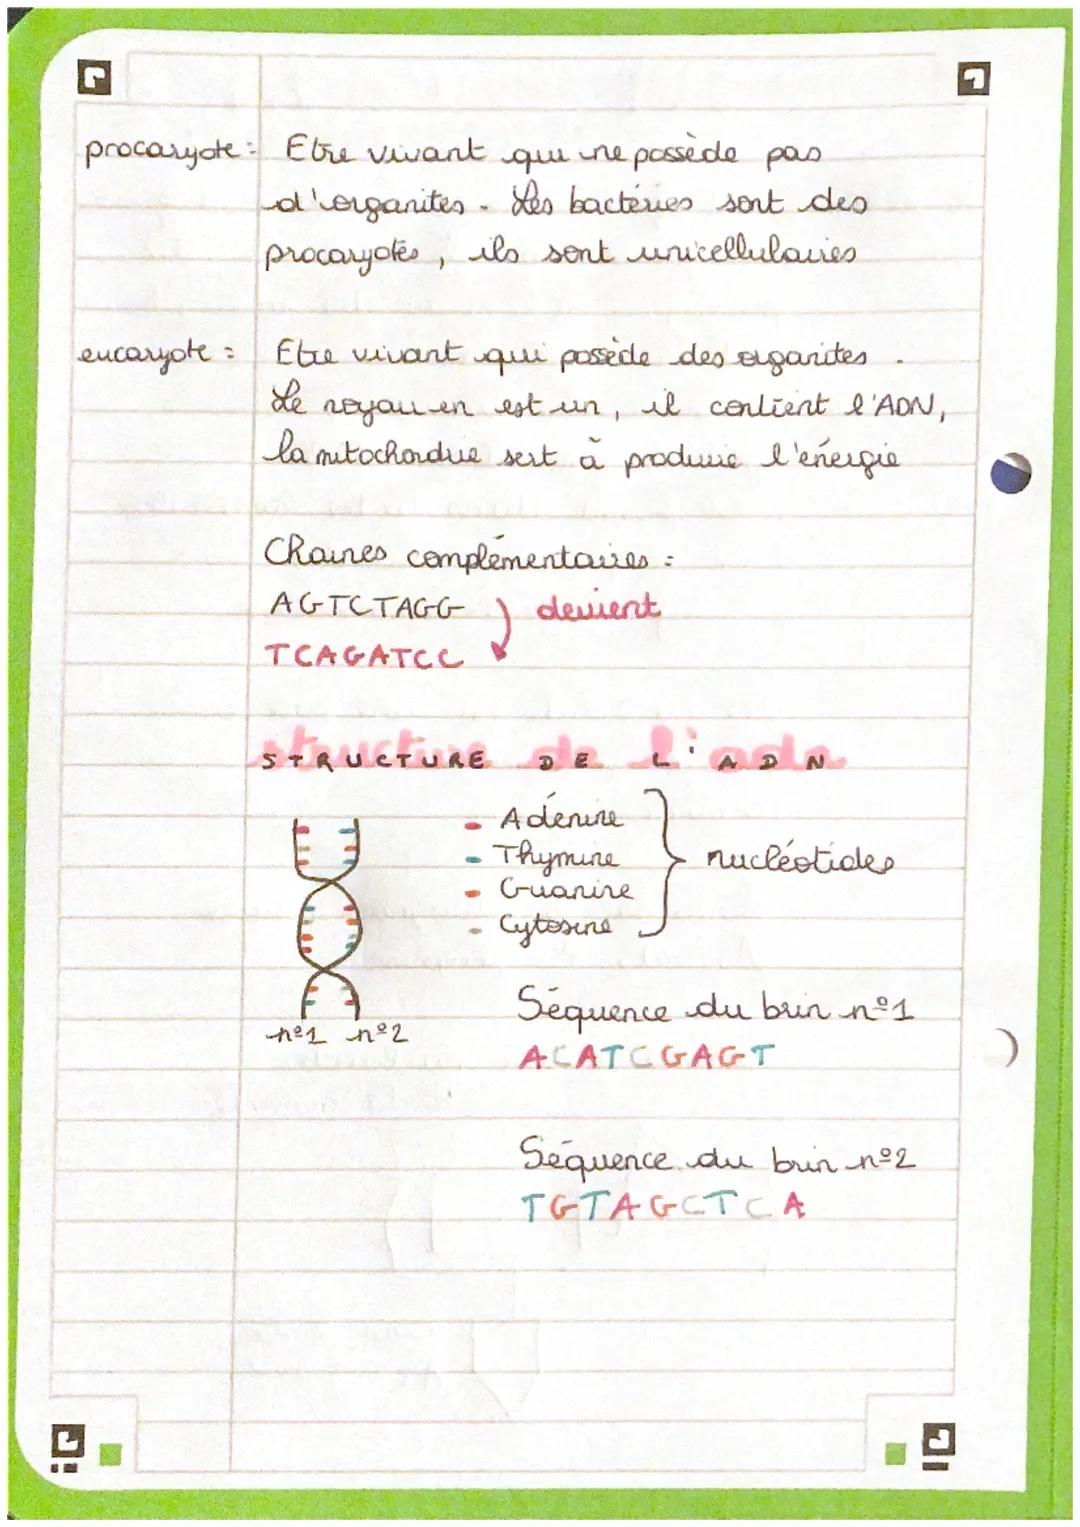 procaryote : Etre vivant qui ne possède pas
d'organites. Les bactéries sont des
procaryotes, ils sont unicellulaires
eucaryote : Etre vivant qui possède des organites.
Le noyau en est un, il contient l'ADN,
la mitochondrie sert à produire l'énergie
Chaines complémentaires :
AGTCTAGG devient
TCAGATCC
structure de l'adn
STRUCTURE DE L'ADN
- Adénine
- Thymine
- Guanine
- Cytosine
nucléotides
n°1 n°2
Séquence du brin n°1
ACATCGAGT
Séquence du brin n°2
TGTAGCTCA